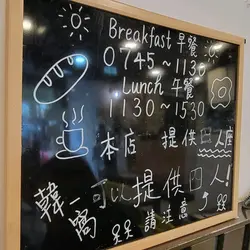 Breakfast 早餐
0745~1130
Lunch 午餐
1130~1530
本店 提供 人座
韓一窩 可以提供 人!
請注意